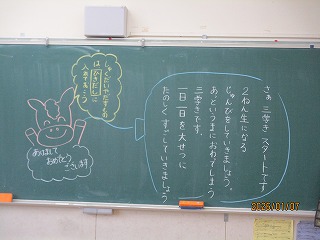 さぁ 三学き スタートです
2ねん生になる
じゅんびをしていきましょう。
あっというまにおわってしまう
三学きです。
一日一日を大せつに
たのしくすごしていきましょう
しゅくだいやだすもの
は ひきだし に
入れてね
あけまして
おめでとう
ございます
2026/01/07